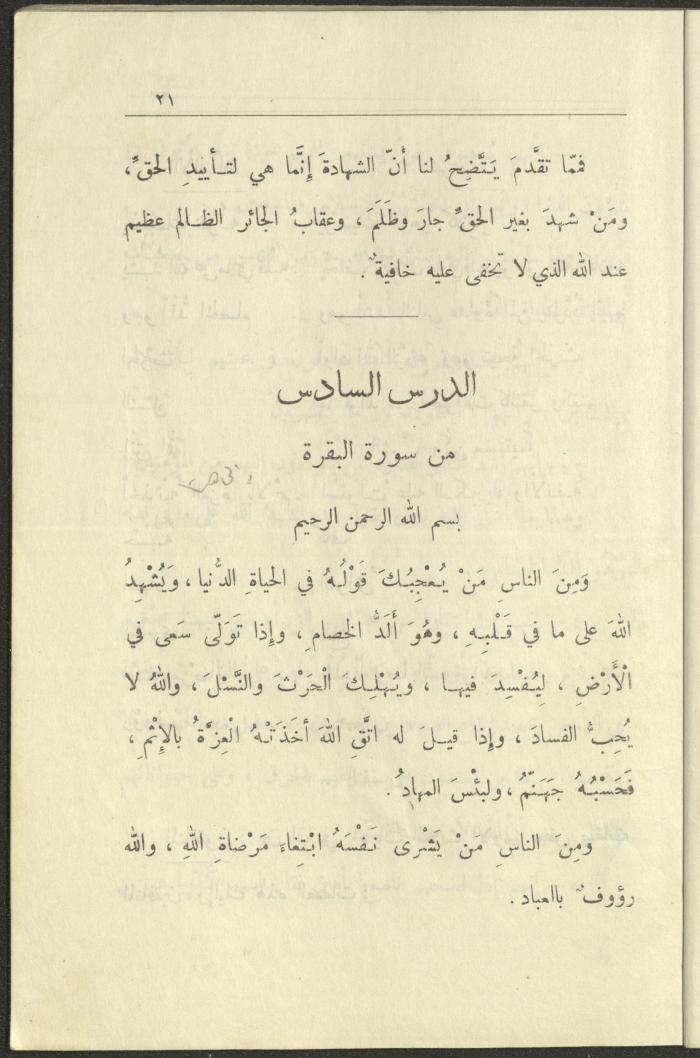 ٢١
فمّا تقدَّمَ يَتَّضِحُ لنا أنّ الشهادةَ إنَّما هي لتأييدِ الحقِّ،
ومَنْ شهدَ بغير الحقِّ جارَ وظَلَمَ ، وعقابُ الجائر الظالم عظيم
عند الله الذي لا تخفى عليه خافيةٌ .
الدرس السادس
من سورة البقرة
بسم الله الرحمن الرحيم
وَمِنَ الناسِ مَنْ يُعْجِبُكَ قَوْلُهُ في الحياةِ الدُّنيا ، وَيُشْهِدُ
اللهَ على ما في قَلْبِهِ ، وهُوَ أَلَدُّ الخصامِ ، وإذا تَوَلّى سَعى في
الْأَرْضِ ، لِيُفْسِدَ فيها ، ويُهْلِكَ الْحَرْثَ والنَّسْلَ ، واللهُ لا
يُحِبُّ الفسادَ ، وإذا قيلَ له اتَّقِ اللهَ أخَذَتْهُ الْعِزَّةُ بالإِثْمِ ،
فَحَسْبُهُ جَهَنّمُ ، ولبئْسَ المهادُ .
ومِنَ الناسِ مَنْ يَشْرى نَفْسَهُ ابْتِغاءَ مَرْضاةِ اللهِ ، والله
رؤوفٌ باالعباد .